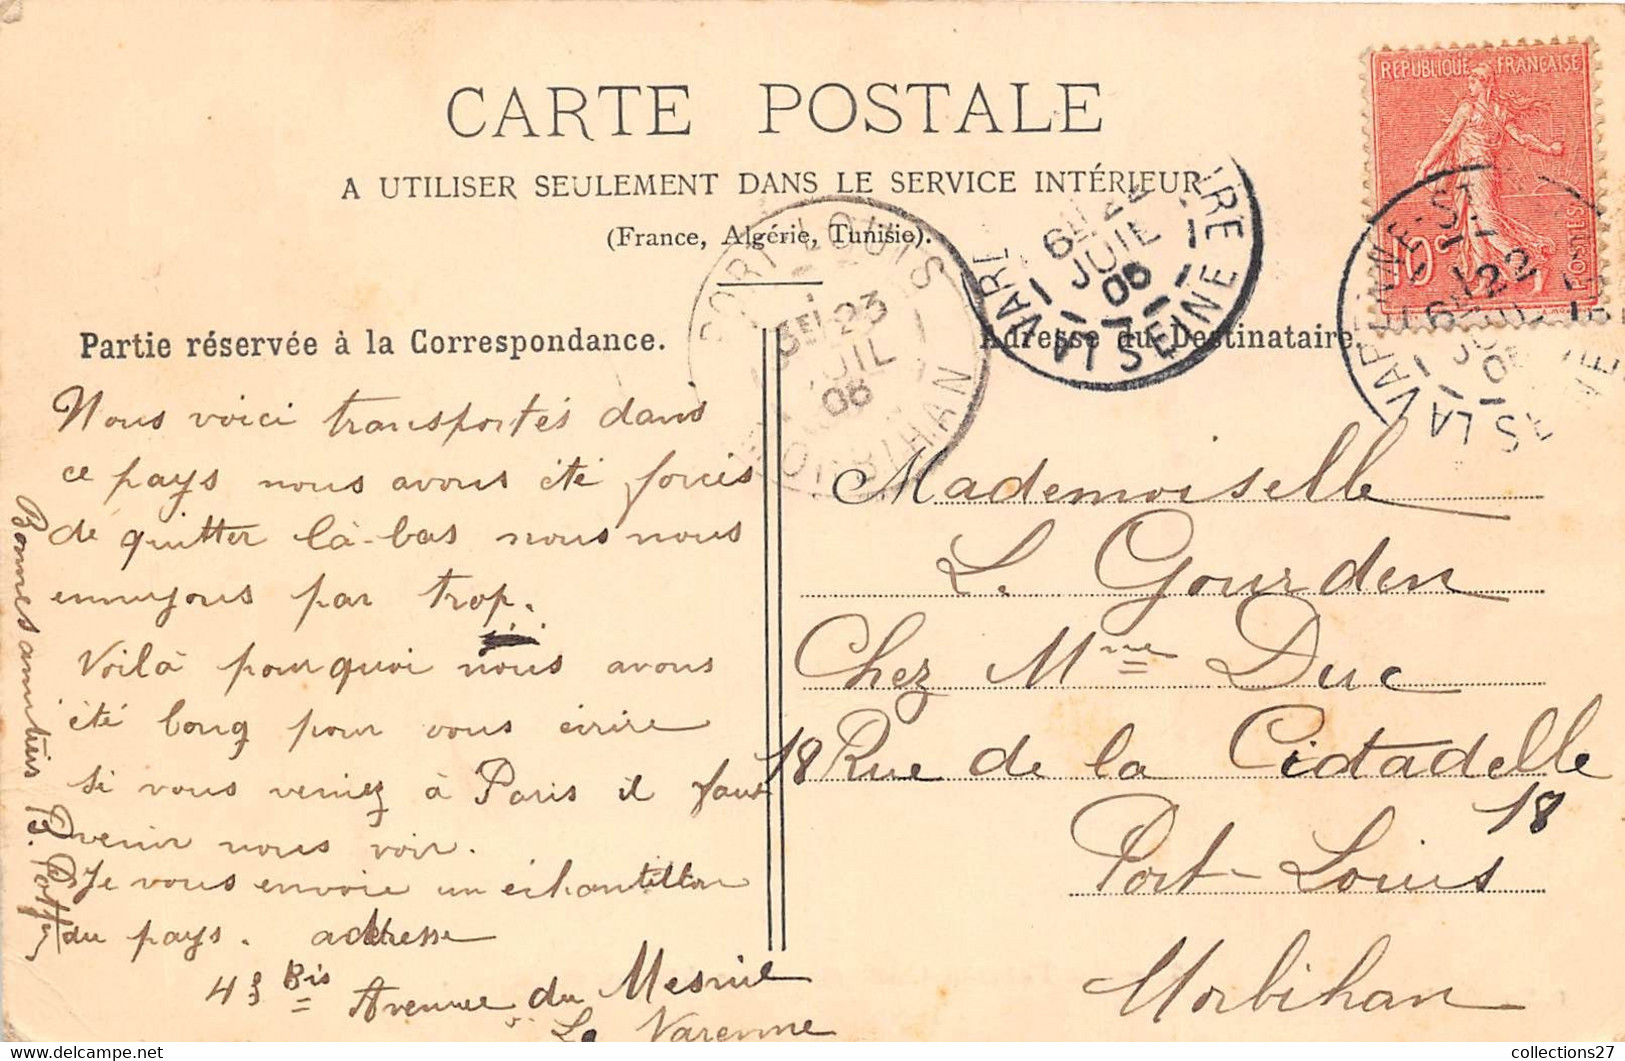 CARTE POSTALE
A UTILISER SEULEMENT DANS LE SERVICE INTÉRIEUR
(France, Algérie, Tunisie).
REPUBLIQUE FRANÇAISE
POSTES
10c
PORT-LOUIS
23
JUIL
06
MORBIHAN
LA VARENNE
22
JUIL
SEINE
Partie réservée à la Correspondance.
Nous voici transportés dans
ce pays nous avons été forcés
de quitter là-bas nous nous
ennuyons par trop.
Voilà pourquoi nous avons
été long pour vous écrire
si vous veniez à Paris il faut
venir nous voir.
Je vous envoie un échantillon
du pays. adresse
Bis Avenue du Mesnil
La Varenne
Bonnes amitiés
Adresse du Destinataire.
Mademoiselle
Le Gourden
Chez Mme Duc
18 Rue de la Citadelle 18
Port-Louis
Morbihan
collections27